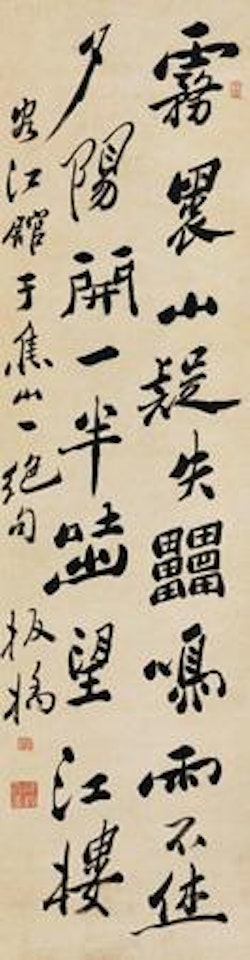 霧裹山疑失雷鳴雨不休
夕陽開一半吐出望江樓
江館于焦山一絕句 板橋